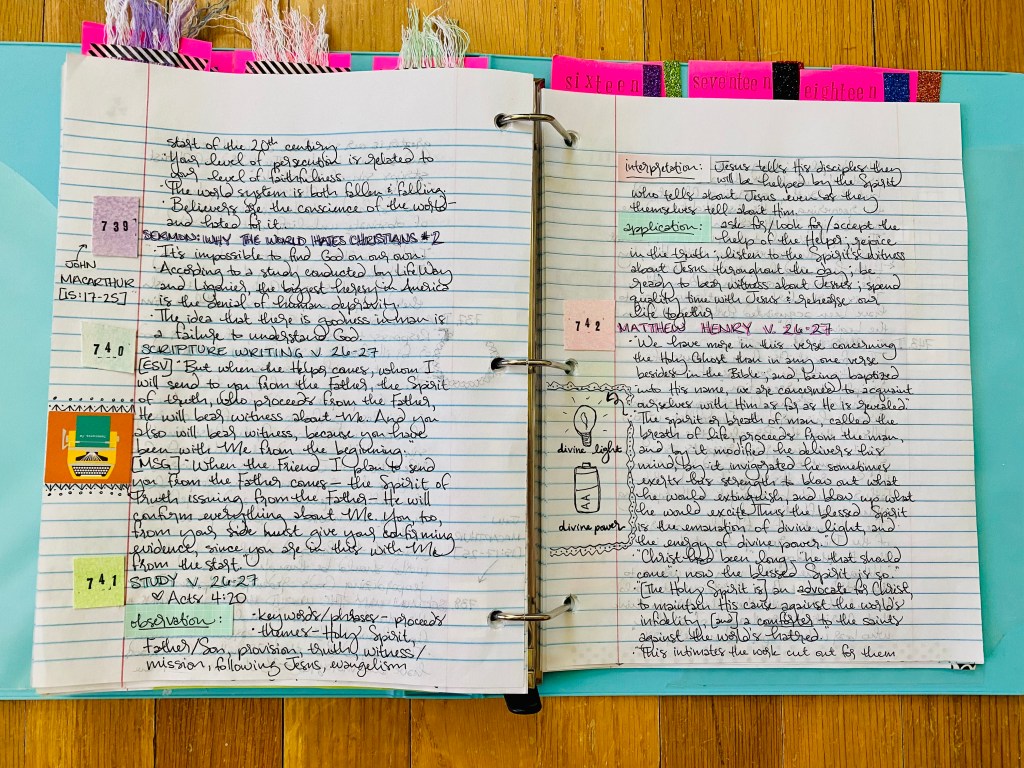 sixteen
seventeen
eighteen
start of the 20th century
· Your level of persecution is related to
your level of faithfulness.
· The world system is both fallen & falling.
· Believers are the conscience of the world–
and hated for it.
739
SERMON: WHY THE WORLD HATES CHRISTIANS #2
JOHN
MACARTHUR
[15:17-25]
· It's impossible to find God on our own.
· According to a study conducted by LifeWay
and Ligonier the biggest heresy in America
is the denial of human depravity.
· The idea that there is goodness in man is
a failure to understand God.
740
SCRIPTURE WRITING V. 26-27
[ESV] · But when the Helper comes, whom I
will send to you from the Father, the Spirit
of truth, who proceeds from the Father,
He will bear witness about Me. And you
also will bear witness, because you have
been with Me from the beginning.
[MSG] · When the Friend I plan to send
you from the Father comes – the Spirit of
Truth issuing from the Father – He will
confirm everything about Me. You, too,
from your side must give your confirming
evidence, since you are in this with Me
from the start.
741
STUDY V. 26-27
♡ Acts 4:20
observation: · keywords/phrases – proceeds
· themes – Holy Spirit,
Father/Son, provision, truth, witness/
mission, following Jesus, evangelism
interpretation: Jesus tells His disciples they
will be helped by the Spirit
who tells about Jesus even as they
themselves tell about Him.
application: ask for/look for/accept the
help of the Helper; rejoice
in the truth; listen to the Spirit's witness
about Jesus throughout the day; be
ready to bear witness about Jesus; spend
quality time with Jesus & rehearse our
life together
742
MATTHEW HENRY V. 26-27
· "We have more in this verse concerning
the Holy Ghost than in any one verse
besides in the Bible; and, being baptized
into His name, we are concerned to acquaint
ourselves with Him as far as He is revealed."
· "The spirit or breath of man, called the
breath of life, proceeds from the man,
and by it modified he delivers his
mind, by it invigorated he sometimes
exerts his strength to blow out what
he would extinguish, and blow up what
he would excite. Thus the blessed Spirit
is the emanation of divine light, and
the energy of divine power."
divine light
AA
divine power
· "Christ had been long, 'he that should
come'; now the blessed Spirit is so."
· "[The Holy Spirit is] an advocate for Christ,
to maintain His cause against the world's
infidelity, [and] a comforter to the saints
against the world's hatred.
· "This intimates the work cut out for them